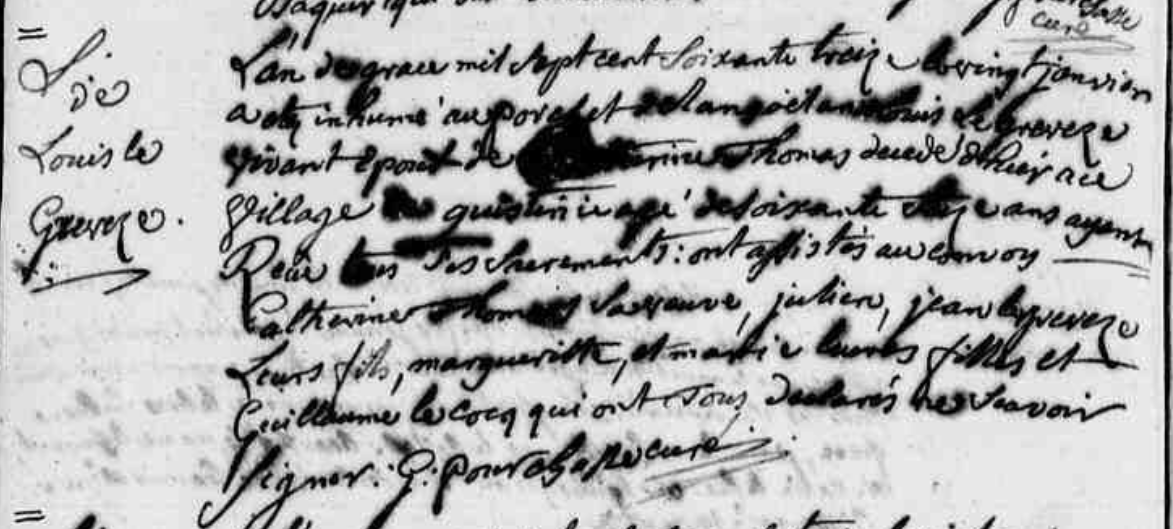 curé
Louis le
Greveze.
L'an de grace mil sept cent soixante treize le vingt janvier
a eté inhumé au porchet de Louis le Greveze
vivant epoux de Thomas decedé d'hier au
village de quistinic agé de soixante seize ans ayant
Reçu tous ses sacrements: ont assistés au convoy
Catherine Thomas sa veuve, julien, jean le greveze
Leurs fils, margueritte, et marie leurs filles et
Guillaume le Cocq qui ont tous declarés ne scavoir
signer. G: curé